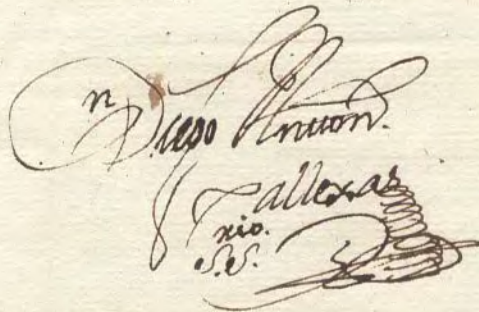 Dn. Diego Anton.
Tallexas
srio.
S.S.